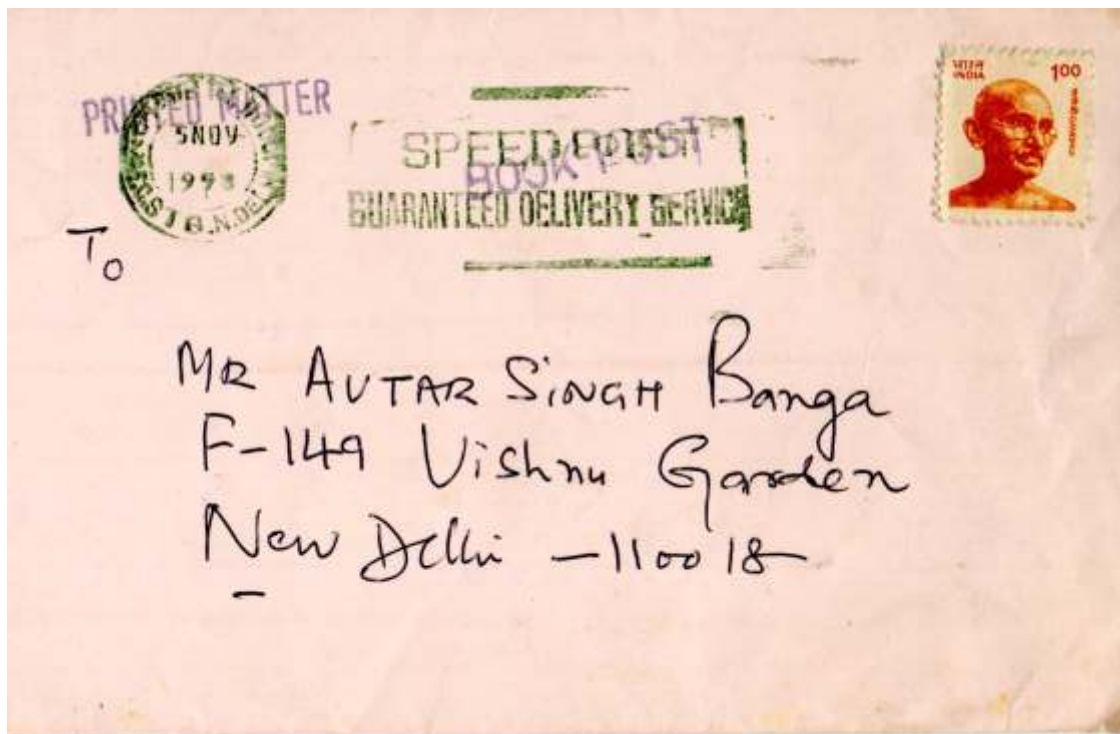 PRINTED MATTER
5 NOV
1993
N.DE
SPEED POST
BOOK POST
GUARANTEED DELIVERY SERVICE
भारत
INDIA
100
To
MR AVTAR SINGH Banga
F-149 Vishnu Garden
New Delhi - 110018